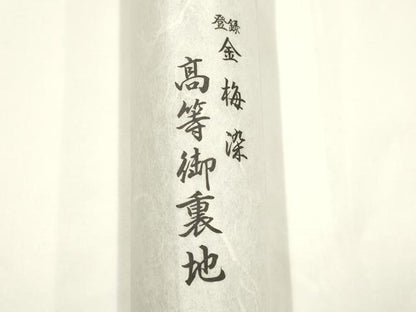 登録
金梅染
高等御裏地